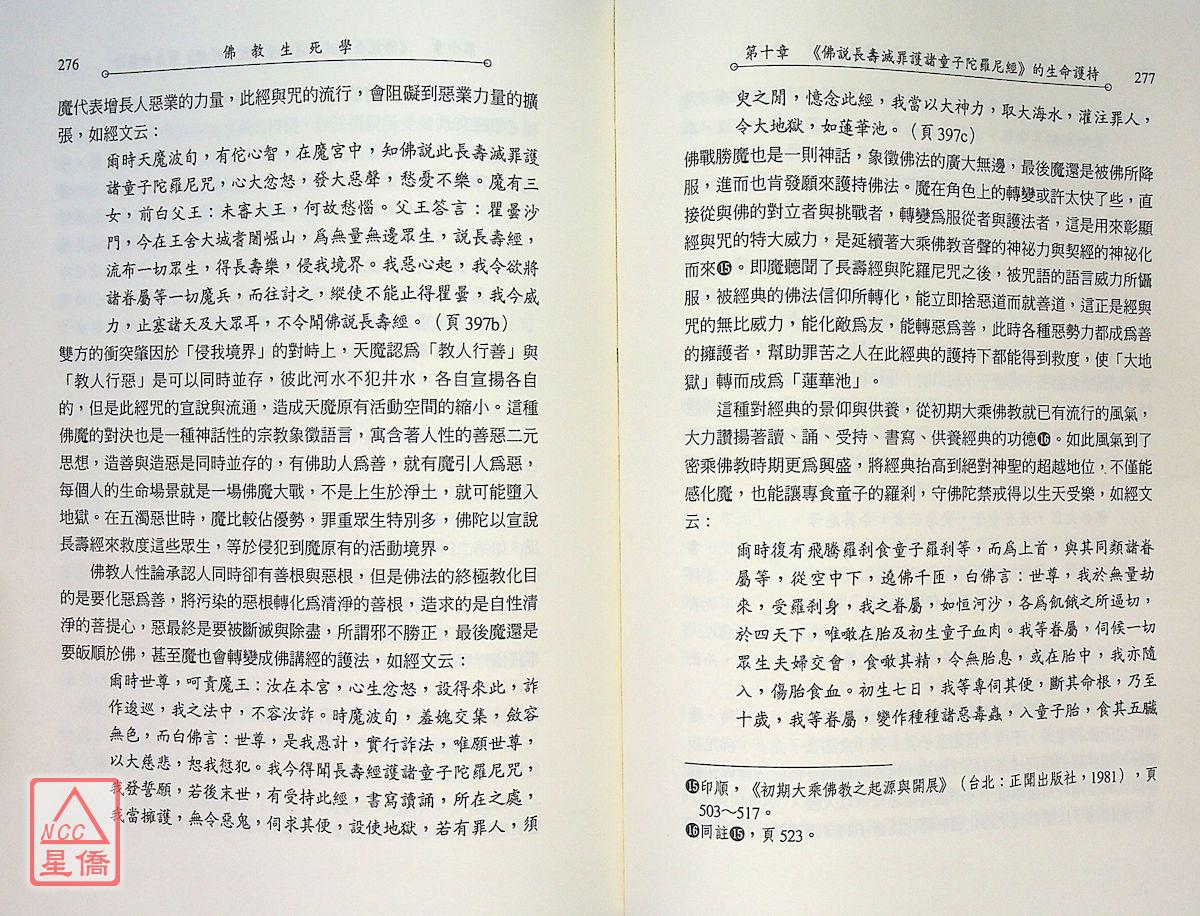 276
佛教生死學
魔代表增長人惡業的力量，此經與咒的流行，會阻礙到惡業力量的擴
張，如經文云：
爾時天魔波旬，有佗心智，在魔宮中，知佛說此長壽滅罪護
諸童子陀羅尼咒，心大忿怒，發大惡聲，愁憂不樂。魔有三
女，前白父王：未審大王，何故愁惱。父王答言：瞿曇沙
門，今在王舍大城耆闍崛山，為無量無邊眾生，說長壽經，
流布一切眾生，得長壽樂，侵我境界。我惡心起，我今欲將
諸眷屬等一切魔兵，而往討之，縱使不能止得瞿曇，我今威
力，止塞諸天及大眾耳，不令聞佛說長壽經。（頁 397b）
雙方的衝突肇因於「侵我境界」的對峙上，天魔認爲「教人行善」與
「教人行惡」是可以同時並存，彼此河水不犯井水，各自宣揚各自
的，但是此經咒的宣說與流通，造成天魔原有活動空間的縮小。這種
佛魔的對決也是一種神話性的宗教象徵語言，寓含著人性的善惡二元
思想，造善與造惡是同時並存的，有佛助人爲善，就有魔引人爲惡，
每個人的生命場景就是一場佛魔大戰，不是上生於淨土，就可能墮入
地獄。在五濁惡世時，魔比較佔優勢，罪重眾生特別多，佛陀以宣說
長壽經來救度這些眾生，等於侵犯到魔原有的活動境界。
佛教人性論承認人同時卻有善根與惡根，但是佛法的終極教化目
的是要化惡爲善，將污染的惡根轉化爲清淨的善根，造求的是自性清
淨的菩提心，惡最終是要被斷滅與除盡，所謂邪不勝正，最後魔還是
要皈順於佛，甚至魔也會轉變成佛講經的護法，如經文云：
爾時世尊，呵責魔王：汝在本宮，心生忿怒，設得來此，詐
作逡巡，我之法中，不容汝詐。時魔波旬，羞媿交集，斂容
無色，而白佛言：世尊，是我愚計，實行詐法，唯願世尊，
以大慈悲，恕我愆犯。我今得聞長壽經護諸童子陀羅尼咒，
我發誓願，若後末世，有受持此經，書寫讀誦，所在之處，
我當擁護，無令惡鬼，伺求其便，設使地獄，若有罪人，須
NCC
星僑
第十章　《佛說長壽滅罪護諸童子陀羅尼經》的生命護持
277
臾之間，憶念此經，我當以大神力，取大海水，灌注罪人，
令大地獄，如蓮華池。（頁 397c）
佛戰勝魔也是一則神話，象徵佛法的廣大無邊，最後魔還是被佛所降
服，進而也肯發願來護持佛法。魔在角色上的轉變或許太快了些，直
接從與佛的對立者與挑戰者，轉變爲服從者與護法者，這是用來彰顯
經與咒的特大威力，是延續著大乘佛教音聲的神祕力與契經的神祕化
而來⓯。即魔聽聞了長壽經與陀羅尼咒之後，被咒語的語言威力所懾
服，被經典的佛法信仰所轉化，能立即捨惡道而就善道，這正是經與
咒的無比威力，能化敵爲友，能轉惡爲善，此時各種惡勢力都成爲善
的擁護者，幫助罪苦之人在此經典的護持下都能得到救度，使「大地
獄」轉而成爲「蓮華池」。
這種對經典的景仰與供養，從初期大乘佛教就已有流行的風氣，
大力讚揚著讀、誦、受持、書寫、供養經典的功德⓰。如此風氣到了
密乘佛教時期更爲興盛，將經典抬高到絕對神聖的超越地位，不僅能
感化魔，也能讓專食童子的羅刹，守佛陀禁戒得以生天受樂，如經文
云：
爾時復有飛騰羅刹食童子羅刹等，而爲上首，與其同類諸眷
屬等，從空中下，遶佛千匝，白佛言：世尊，我於無量劫
來，受羅刹身，我之眷屬，如恒河沙，各爲飢餓之所逼切，
於四天下，唯敢在胎及初生童子血肉。我等眷屬，伺候一切
眾生夫婦交會，食敢其精，令無胎息，或在胎中，我亦隨
入，傷胎食血。初生七日，我等專伺其便，斷其命根，乃至
十歲，我等眷屬，變作種種諸惡毒蟲，入童子胎，食其五臟
⓯印順，《初期大乘佛教之起源與開展》（台北：正聞出版社，1981），頁
503～517。
⓰同註⓯，頁 523。